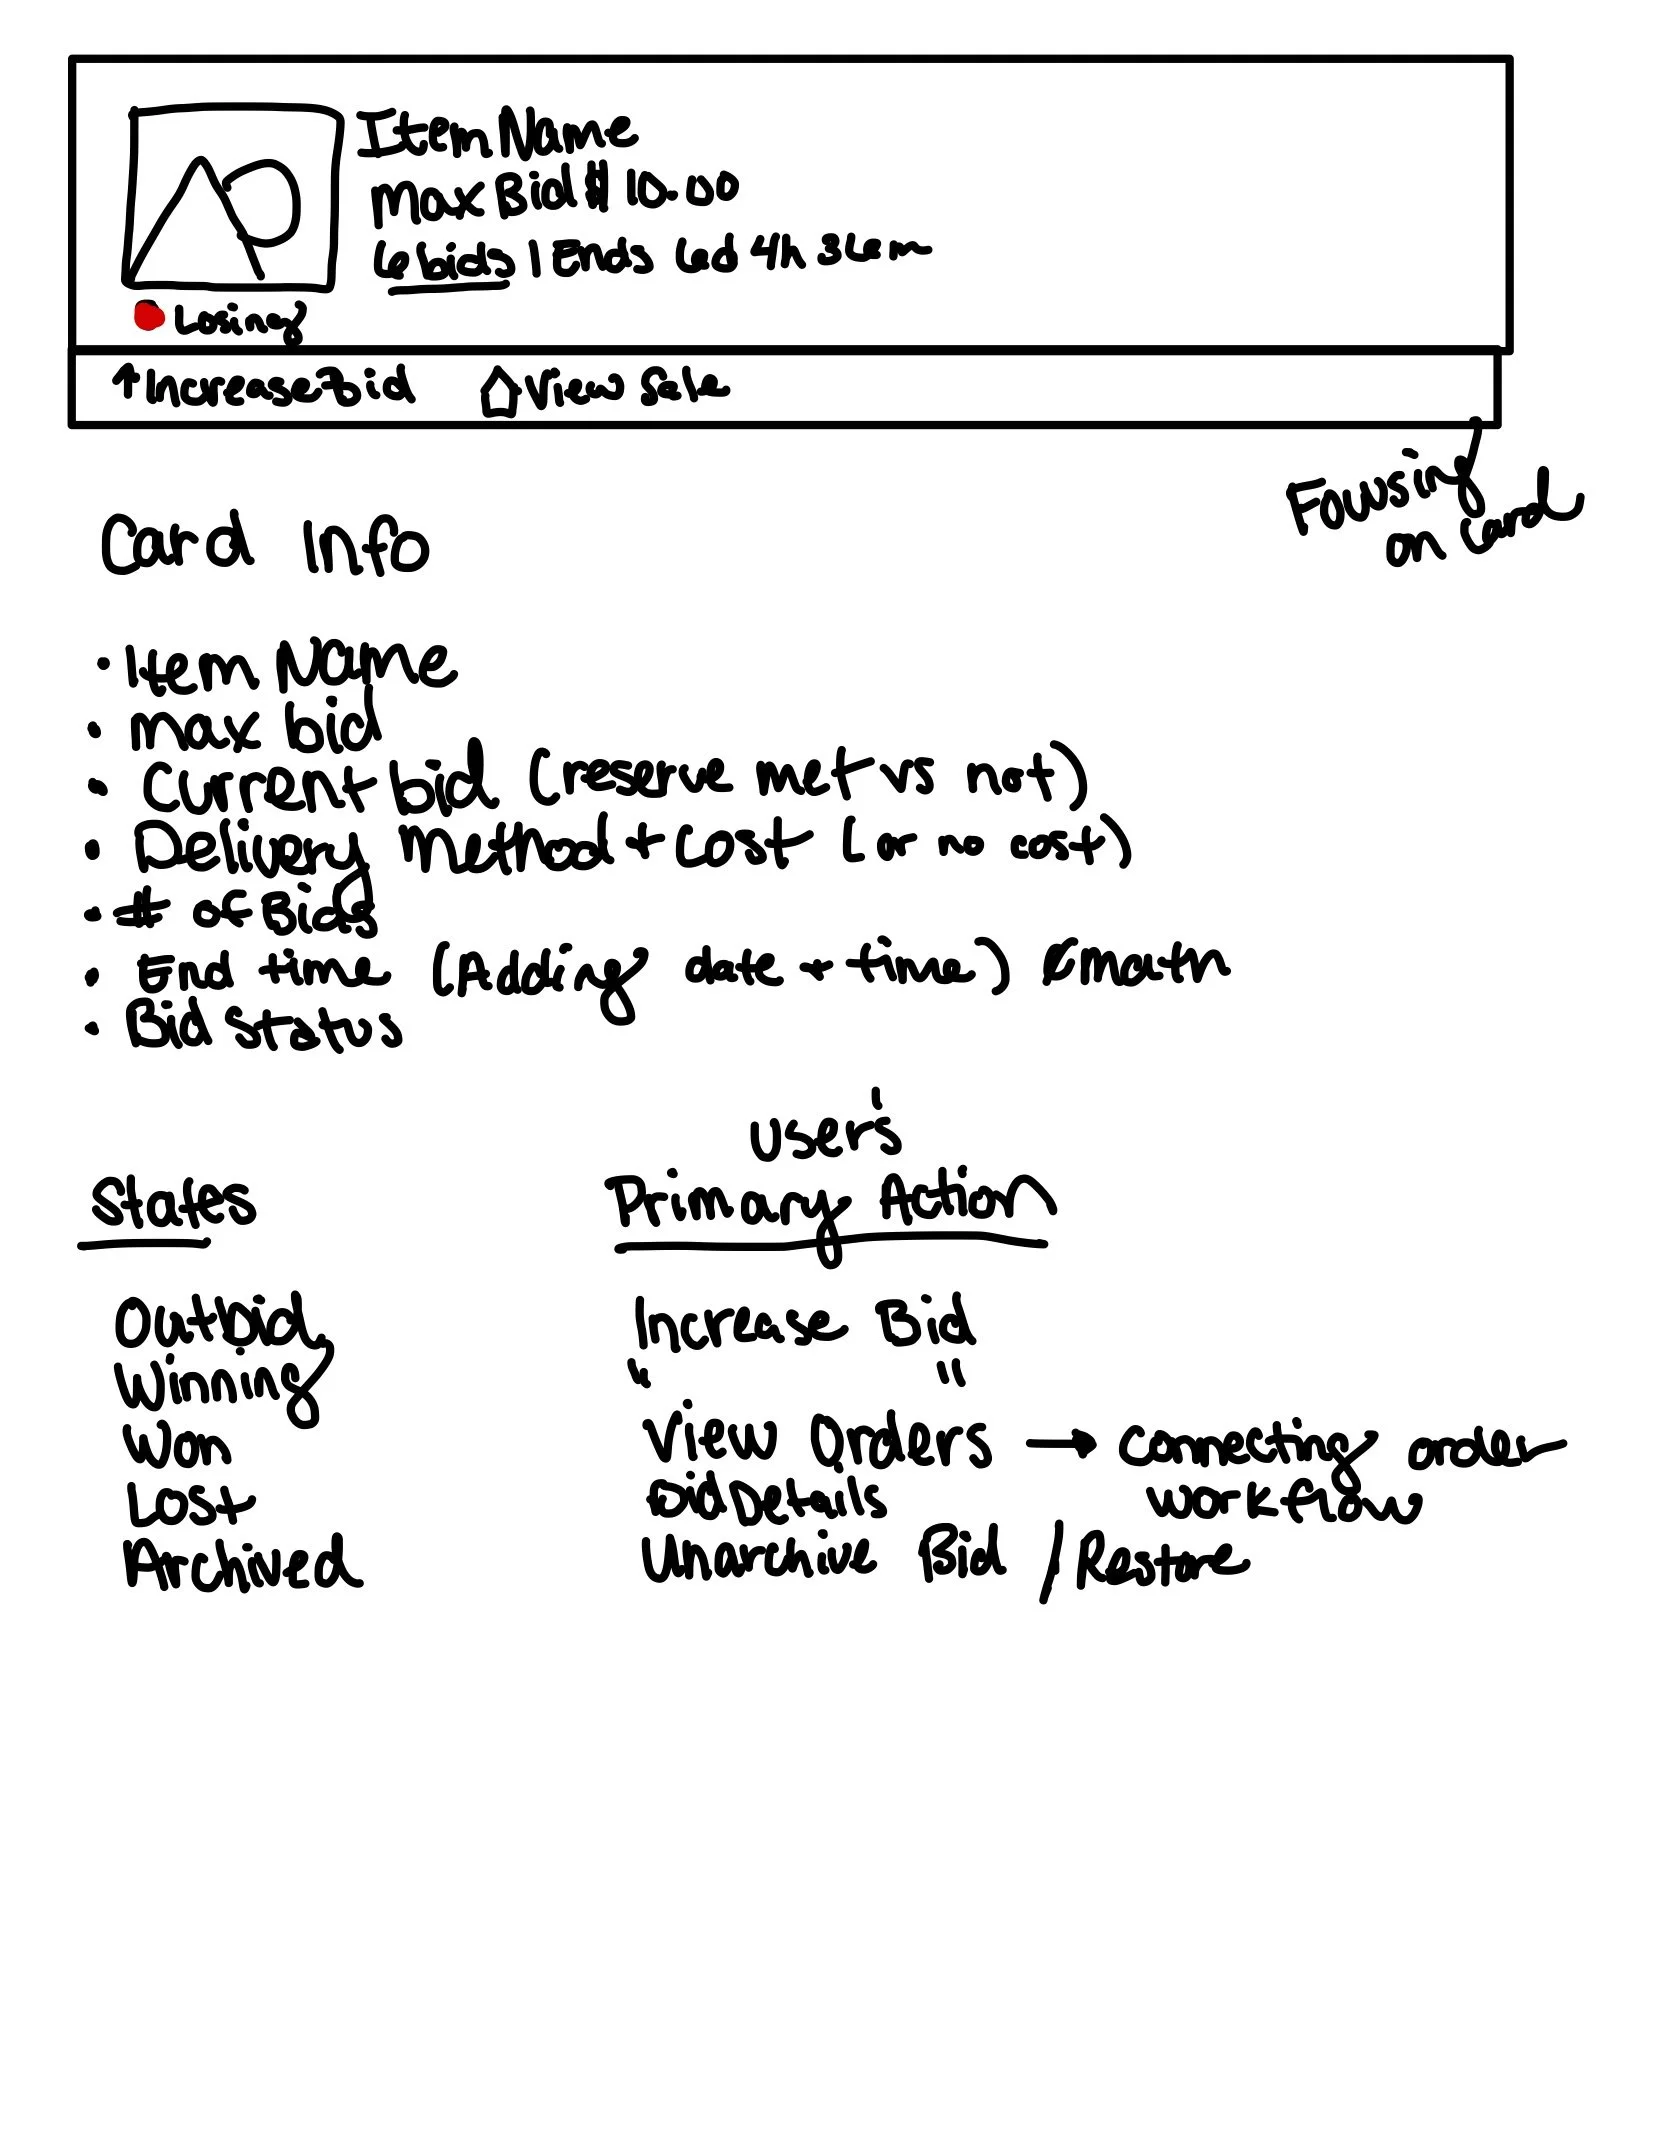 Item Name
Max Bid $10.00
6 bids | Ends 6d 4h 36m
Losing
↑ Increase Bid View Sale
Focusing
on card
Card Info
• Item Name
• max bid
• Current bid (reserve met vs not)
• Delivery Method + Cost (or no cost)
• # of Bids
• End time (Adding date + time) ¢math
• Bid Status
User's
States Primary Action
Outbid Increase Bid
Winning " "
Won View Orders → connecting order
workflow
Lost Bid Details
Archived Unarchive Bid / Restore